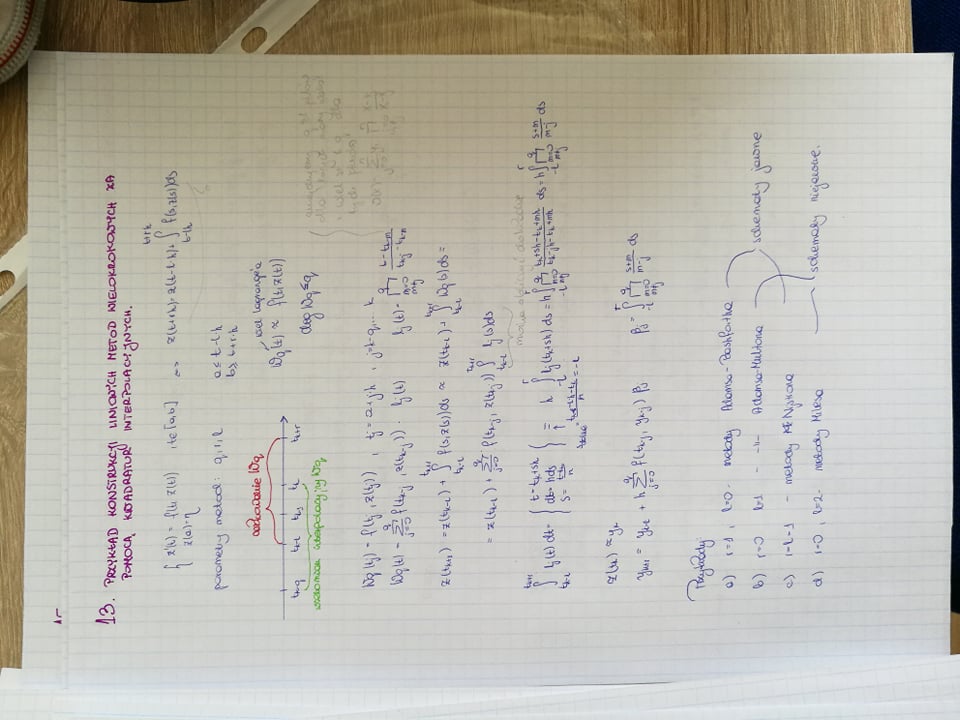 13. PRZYKŁAD KONSTRUKCJI LINIOWYCH METOD WIELOKROKOWYCH ZA
POMOCĄ KWADRATUR INTERPOLACYJNYCH.
{ z'(t) = f(t, z(t)) , t∈[a,b]
z(a)=η
=> z(t+rh) = z(t-l·h) + ∫_{t-lh}^{t+rh} f(s,z(s))ds
parametry metod: q, r, l
a ≤ t-l·h
b ≥ t+r·h
całkowanie Wq
t_{k-q} t_{k-l} t_{k-1} t_k t_{k+r}
wiel Lagrange'a
Wq(t) ≈ f(t,z(t))
deg Wq ≤ q
Wq(tj) = f(tj, z(tj)) , tj = a+j·h , j=k-q,... k
Wq(t) = Σ_{j=0}^{q} f(t_{k-j}, z(t_{k-j})) · lj(t) lj(t) = ∏_{m=0, m≠j}^{q} (t-t_{k-m})/(t_{k-j}-t_{k-m})
z(t_{k+r}) = z(t_{k-l}) + ∫_{t_{k-l}}^{t_{k+r}} f(s,z(s))ds ≈ z(t_{k-l}) + ∫_{t_{k-l}}^{t_{k+r}} Wq(s) ds =
= z(t_{k-l}) + Σ_{j=0}^{q} f(t_{k-j}, z(t_{k-j})) ∫_{t_{k-l}}^{t_{k+r}} lj(s)ds
można obliczyć dokładnie
∫_{t_{k-l}}^{t_{k+r}} lj(t) dt = { t=t_k+sh dt=hds s=(t-t_k)/h } = h ∫_{-l}^{r} lj(t_k+sh) ds = h ∫_{-l}^{r} ∏_{m=0, m≠j}^{q} (t_k+sh-t_k+mh)/(t_k-jh-t_k+mh) ds = h ∫_{-l}^{r} ∏_{m=0, m≠j}^{q} (s+m)/(m-j) ds
(t_k-l·h-t_k)/h = -l
z(t_k) ≈ y_k
y_{k+r} = y_{k-l} + h Σ_{j=0}^{q} f(t_{k-j}, y_{k-j}) βj βj = ∫_{-l}^{r} ∏_{m=0, m≠j}^{q} (s+m)/(m-j) ds
Przykłady:
a) r=1, l=0 - metody Adamsa-Bashfortha
b) r=0 l=1 - -"- Adamsa-Moultona
schematy jawne
c) r=l=1 - metody Nystroma
d) r=0, l=2 - metody Milesa
schematy niejawne.